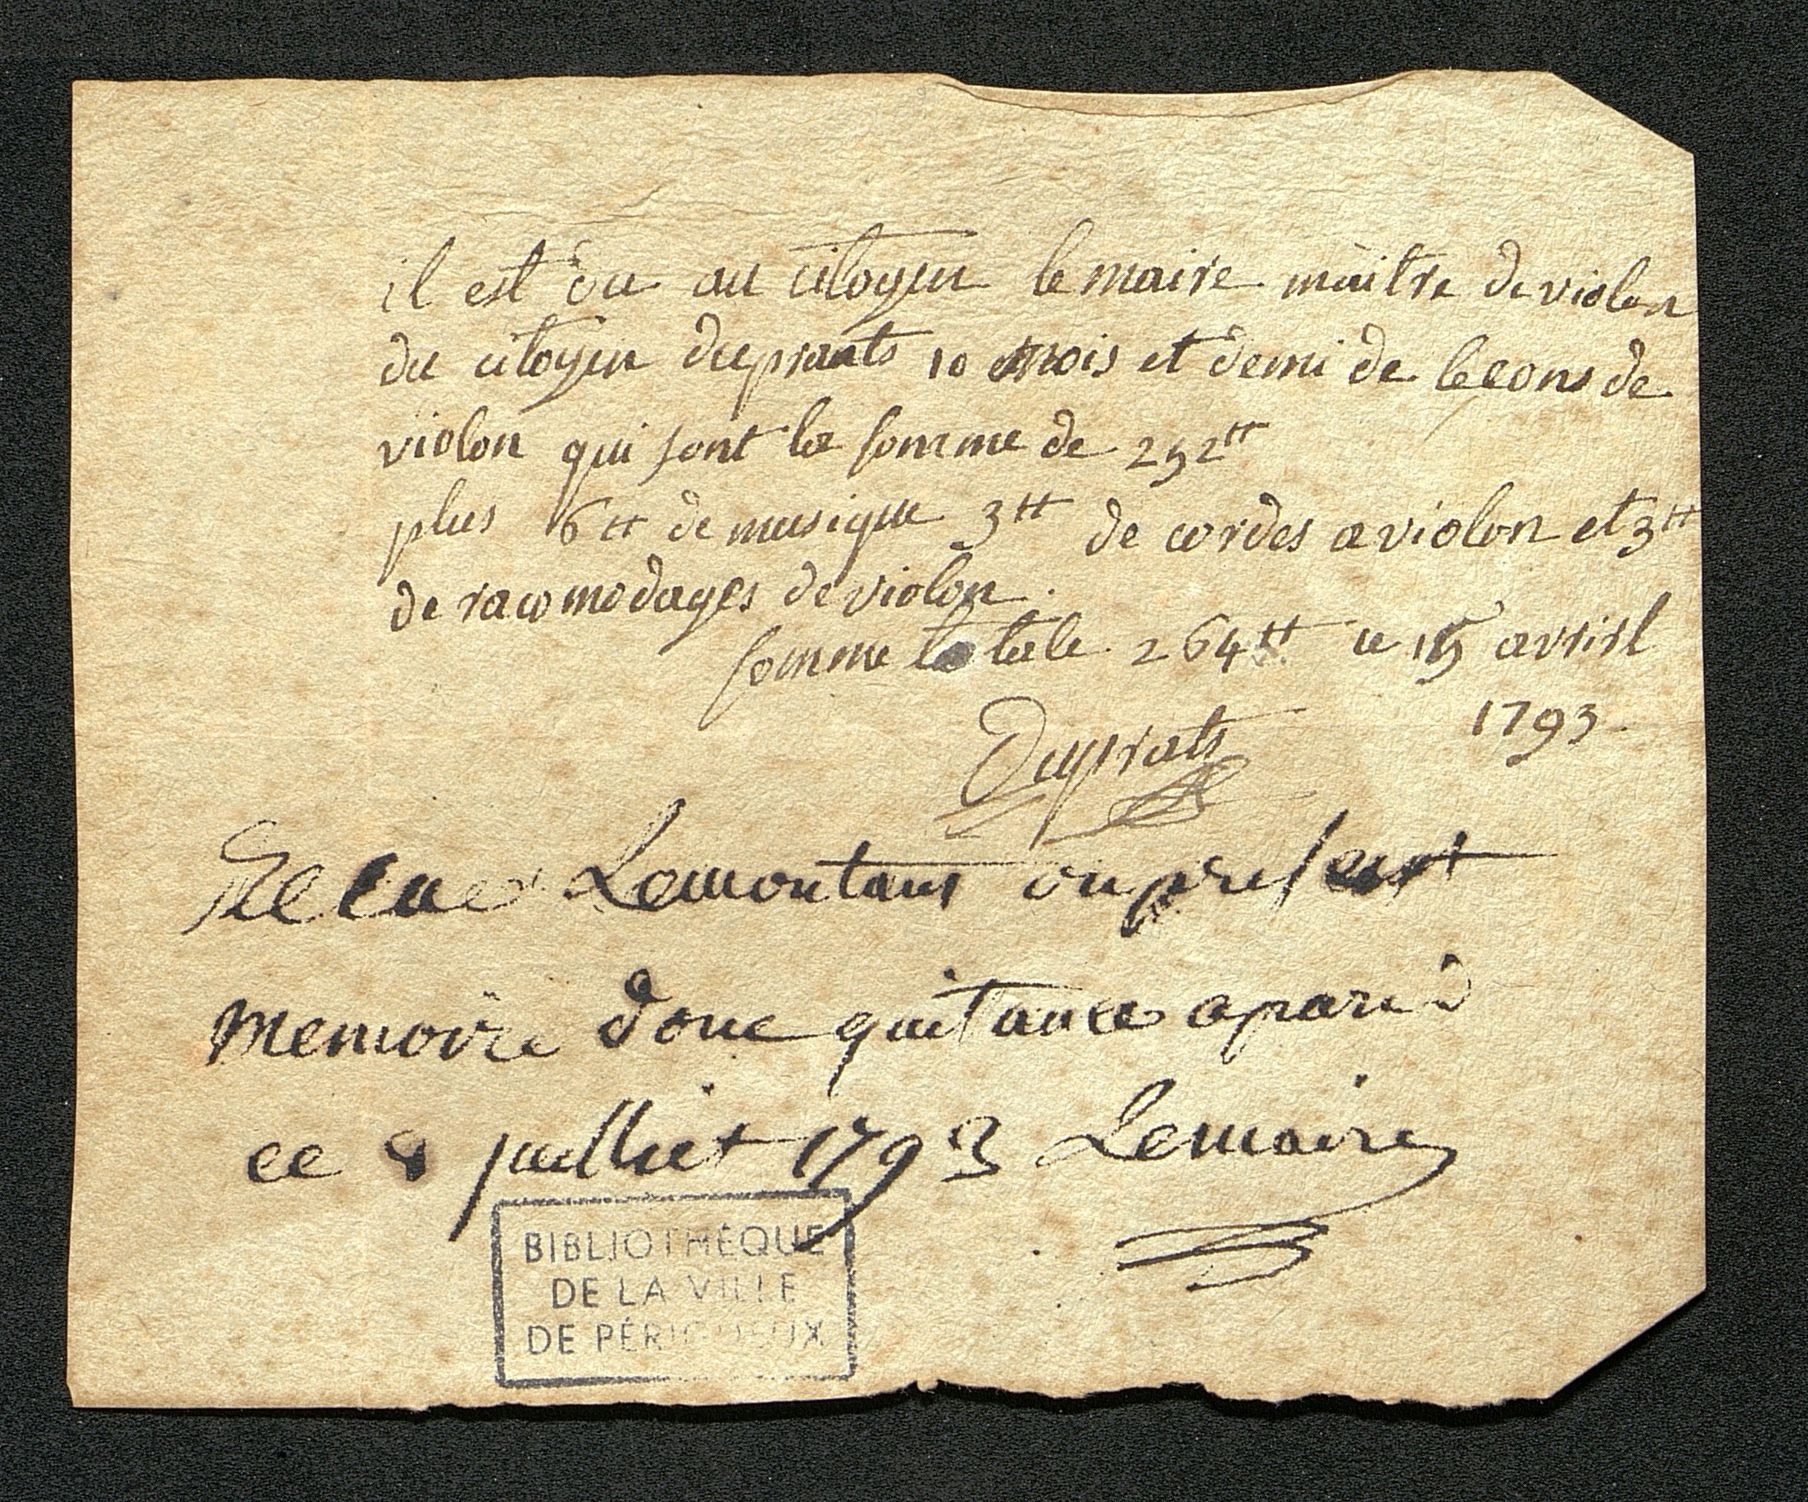 il est du au citoyen lemaire maitre de violon
du citoyen duprats 10 mois et demi de leçons de
violon qui font la somme de 252 tt
plus 6 tt de musique 3 tt de cordes a violon et 3 tt
de racomodages de violon.
somme totale 264 tt ce 15 avrisl
1793
Duprats
Recue Lemontans du present
memoire donc quitance a pari
ce 8 juilliet 1793 Lemaire
BIBLIOTHÈQUE
DE LA VILLE
DE PÉRIGUEUX